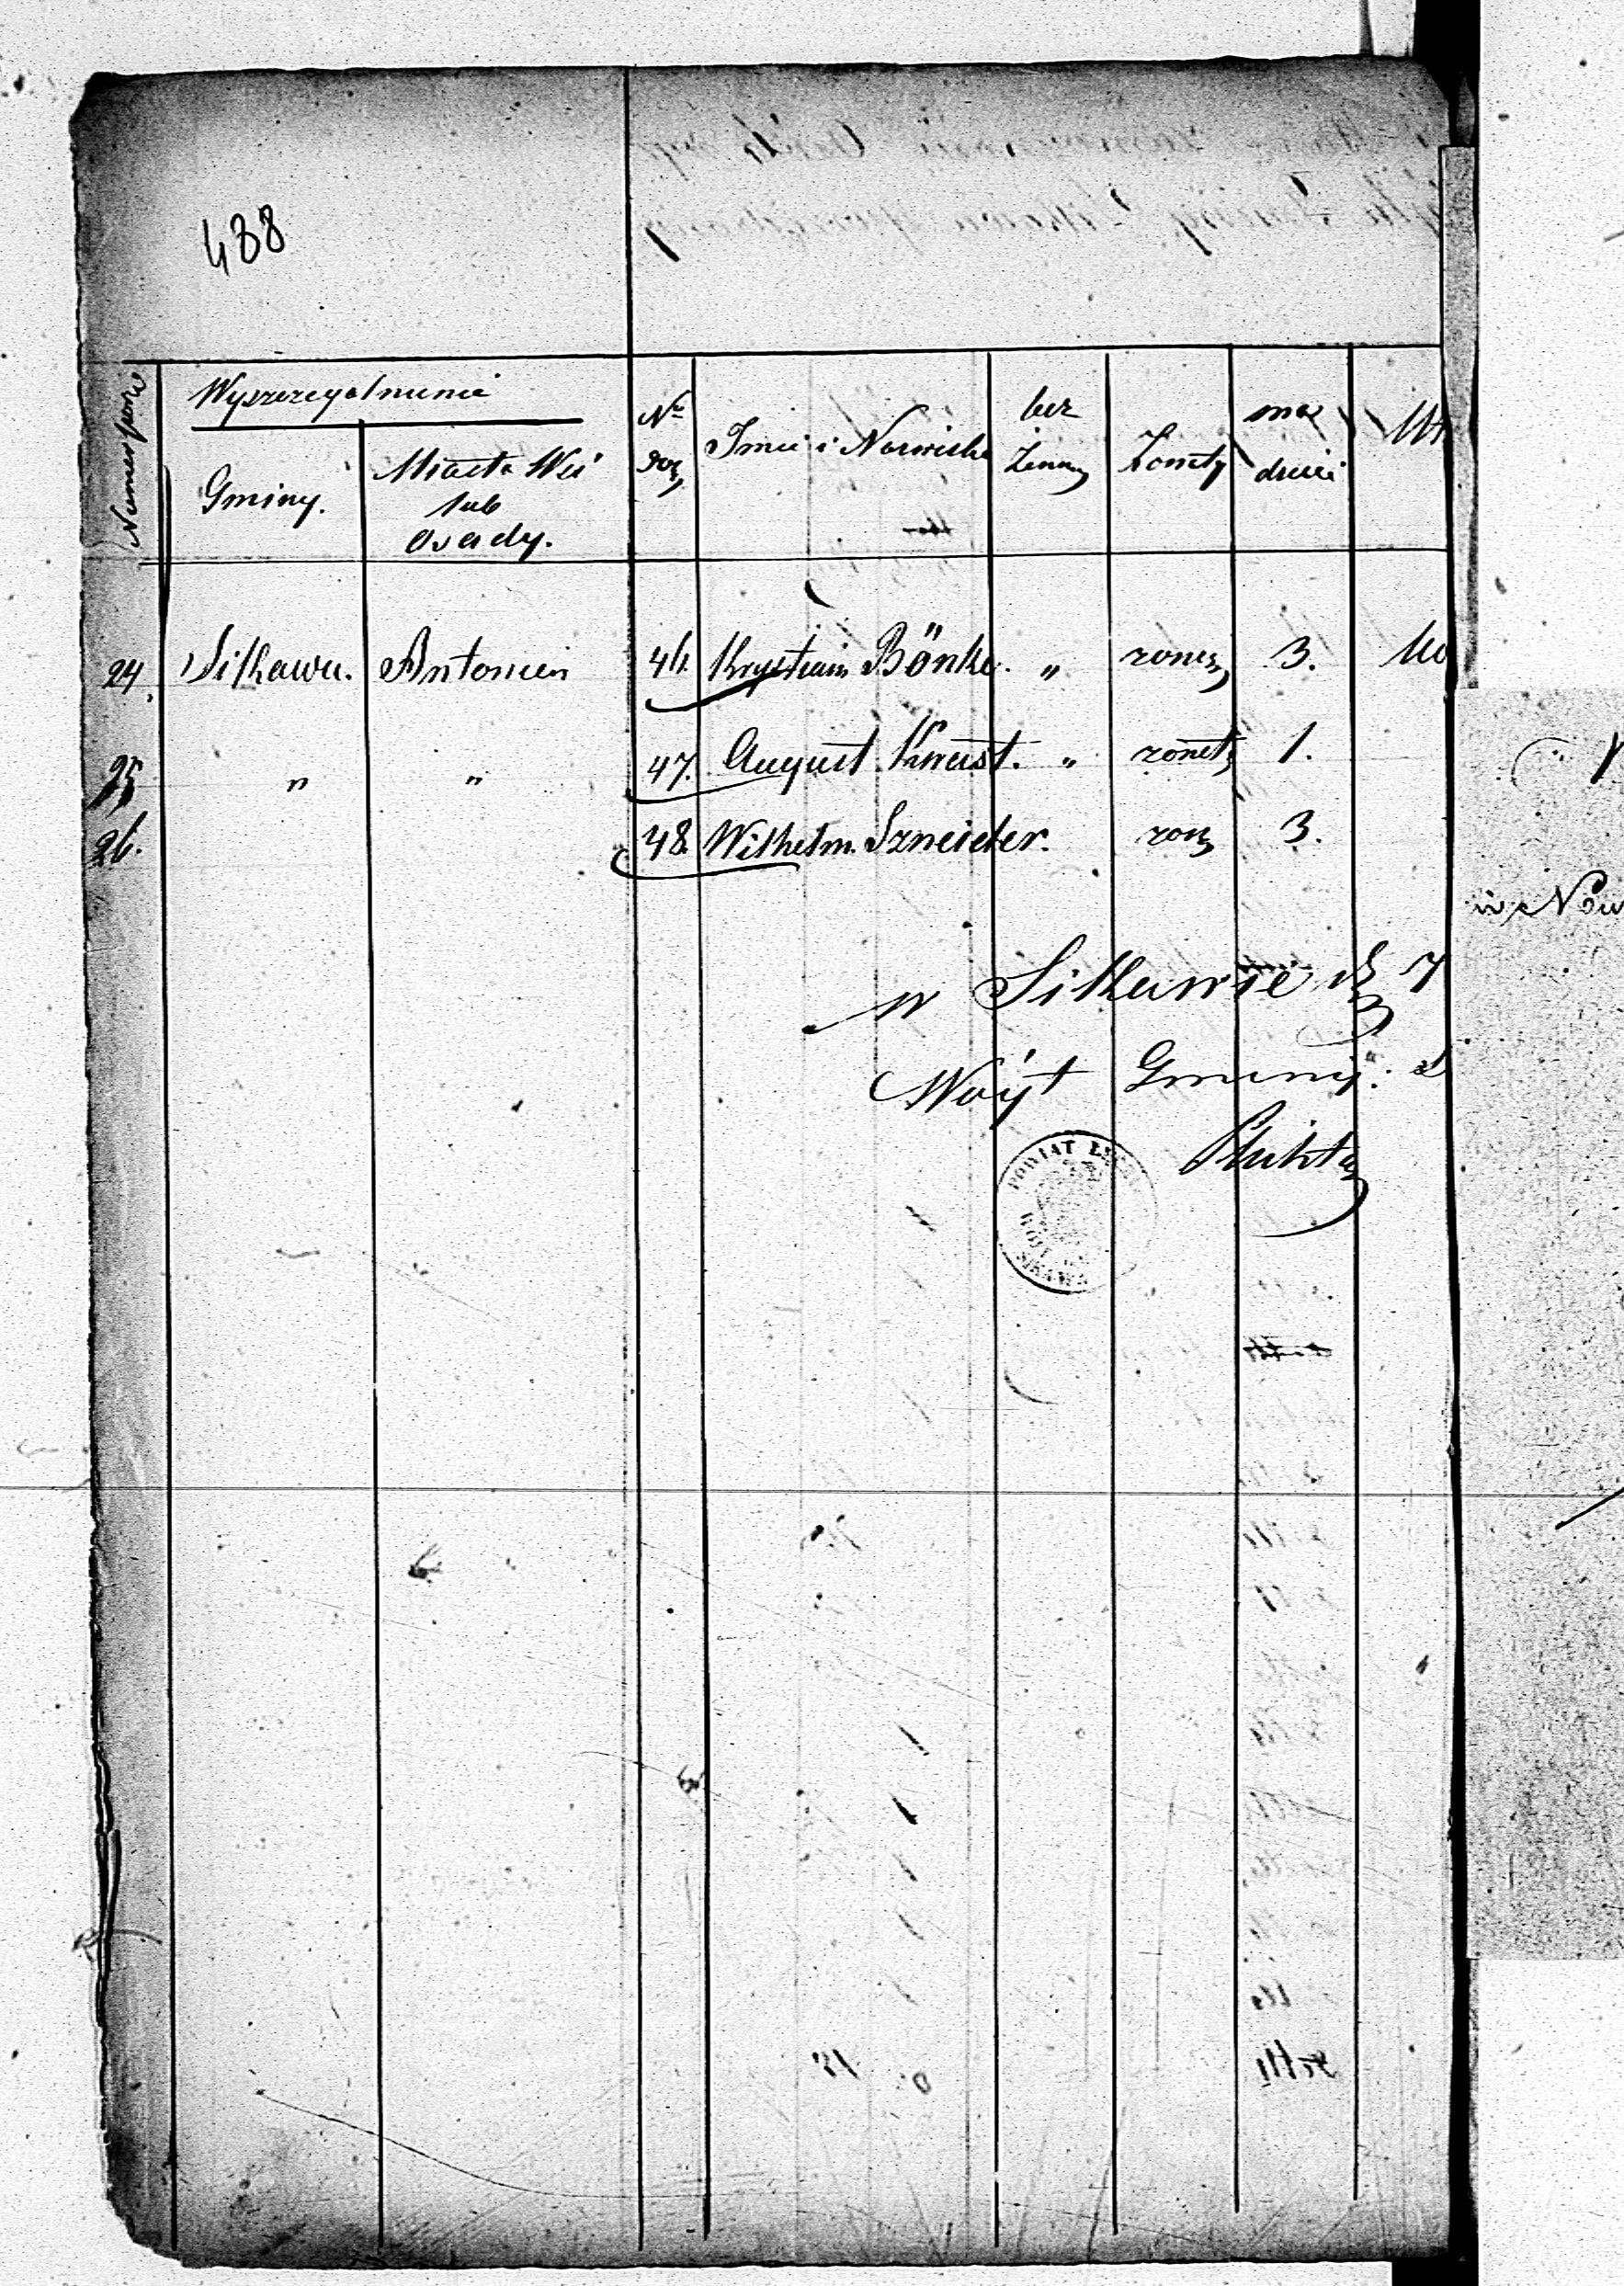 488
Numer porz
Wyszczegolnienie
Gminy.
Miasta Wsi
lub
Osady.
Nr
Imie i Nazwisko
bez
Zenny
Zonaty
ma
dzieci
24. Sikawa. Antoniew 46. Krystian Bönke. " zonaty 3.
25 " " 47. August Knust. " zonaty 1.
26. 48. Wilhelm Szneider. zon 3.
w Sikawie d 7
Woÿt Gminÿ:
POWIAT